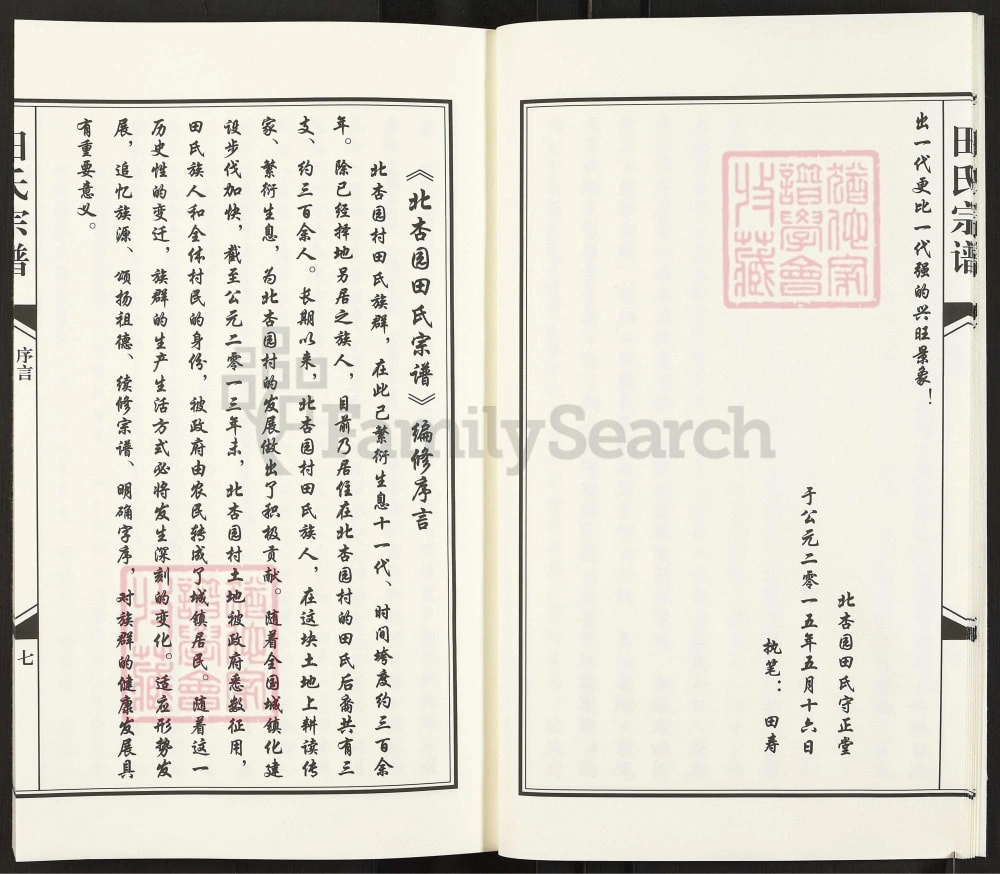 田氏宗谱
出一代更比一代强的兴旺景象！
北杏园田氏守正堂
于公元二零一五年五月十六日
执笔：田寿
《北杏园田氏宗谱》编修序言
北杏园村田氏族群，在此已繁衍生息十一代、时间垮度约三百余
年。除已经择地另居之族人，目前乃居住在北杏园村的田氏后裔共有三
支、约三百余人。长期以来，北杏园村田氏族人，在这块土地上耕读传
家、繁衍生息，为北杏园村的发展做出了积极贡献。随着全国城镇化建
设步伐加快，截至公元二零一三年末，北杏园村土地被政府悉数征用，
田氏族人和全体村民的身份，被政府由农民转成了城镇居民。随着这一
历史性的变迁，族群的生产生活方式必将发生深刻的变化。适应形势发
展，追忆族源、颂扬祖德、续修宗谱、明确字序，对族群的健康发展具
有重要意义。
田氏宗谱
序言
七
FamilySearch